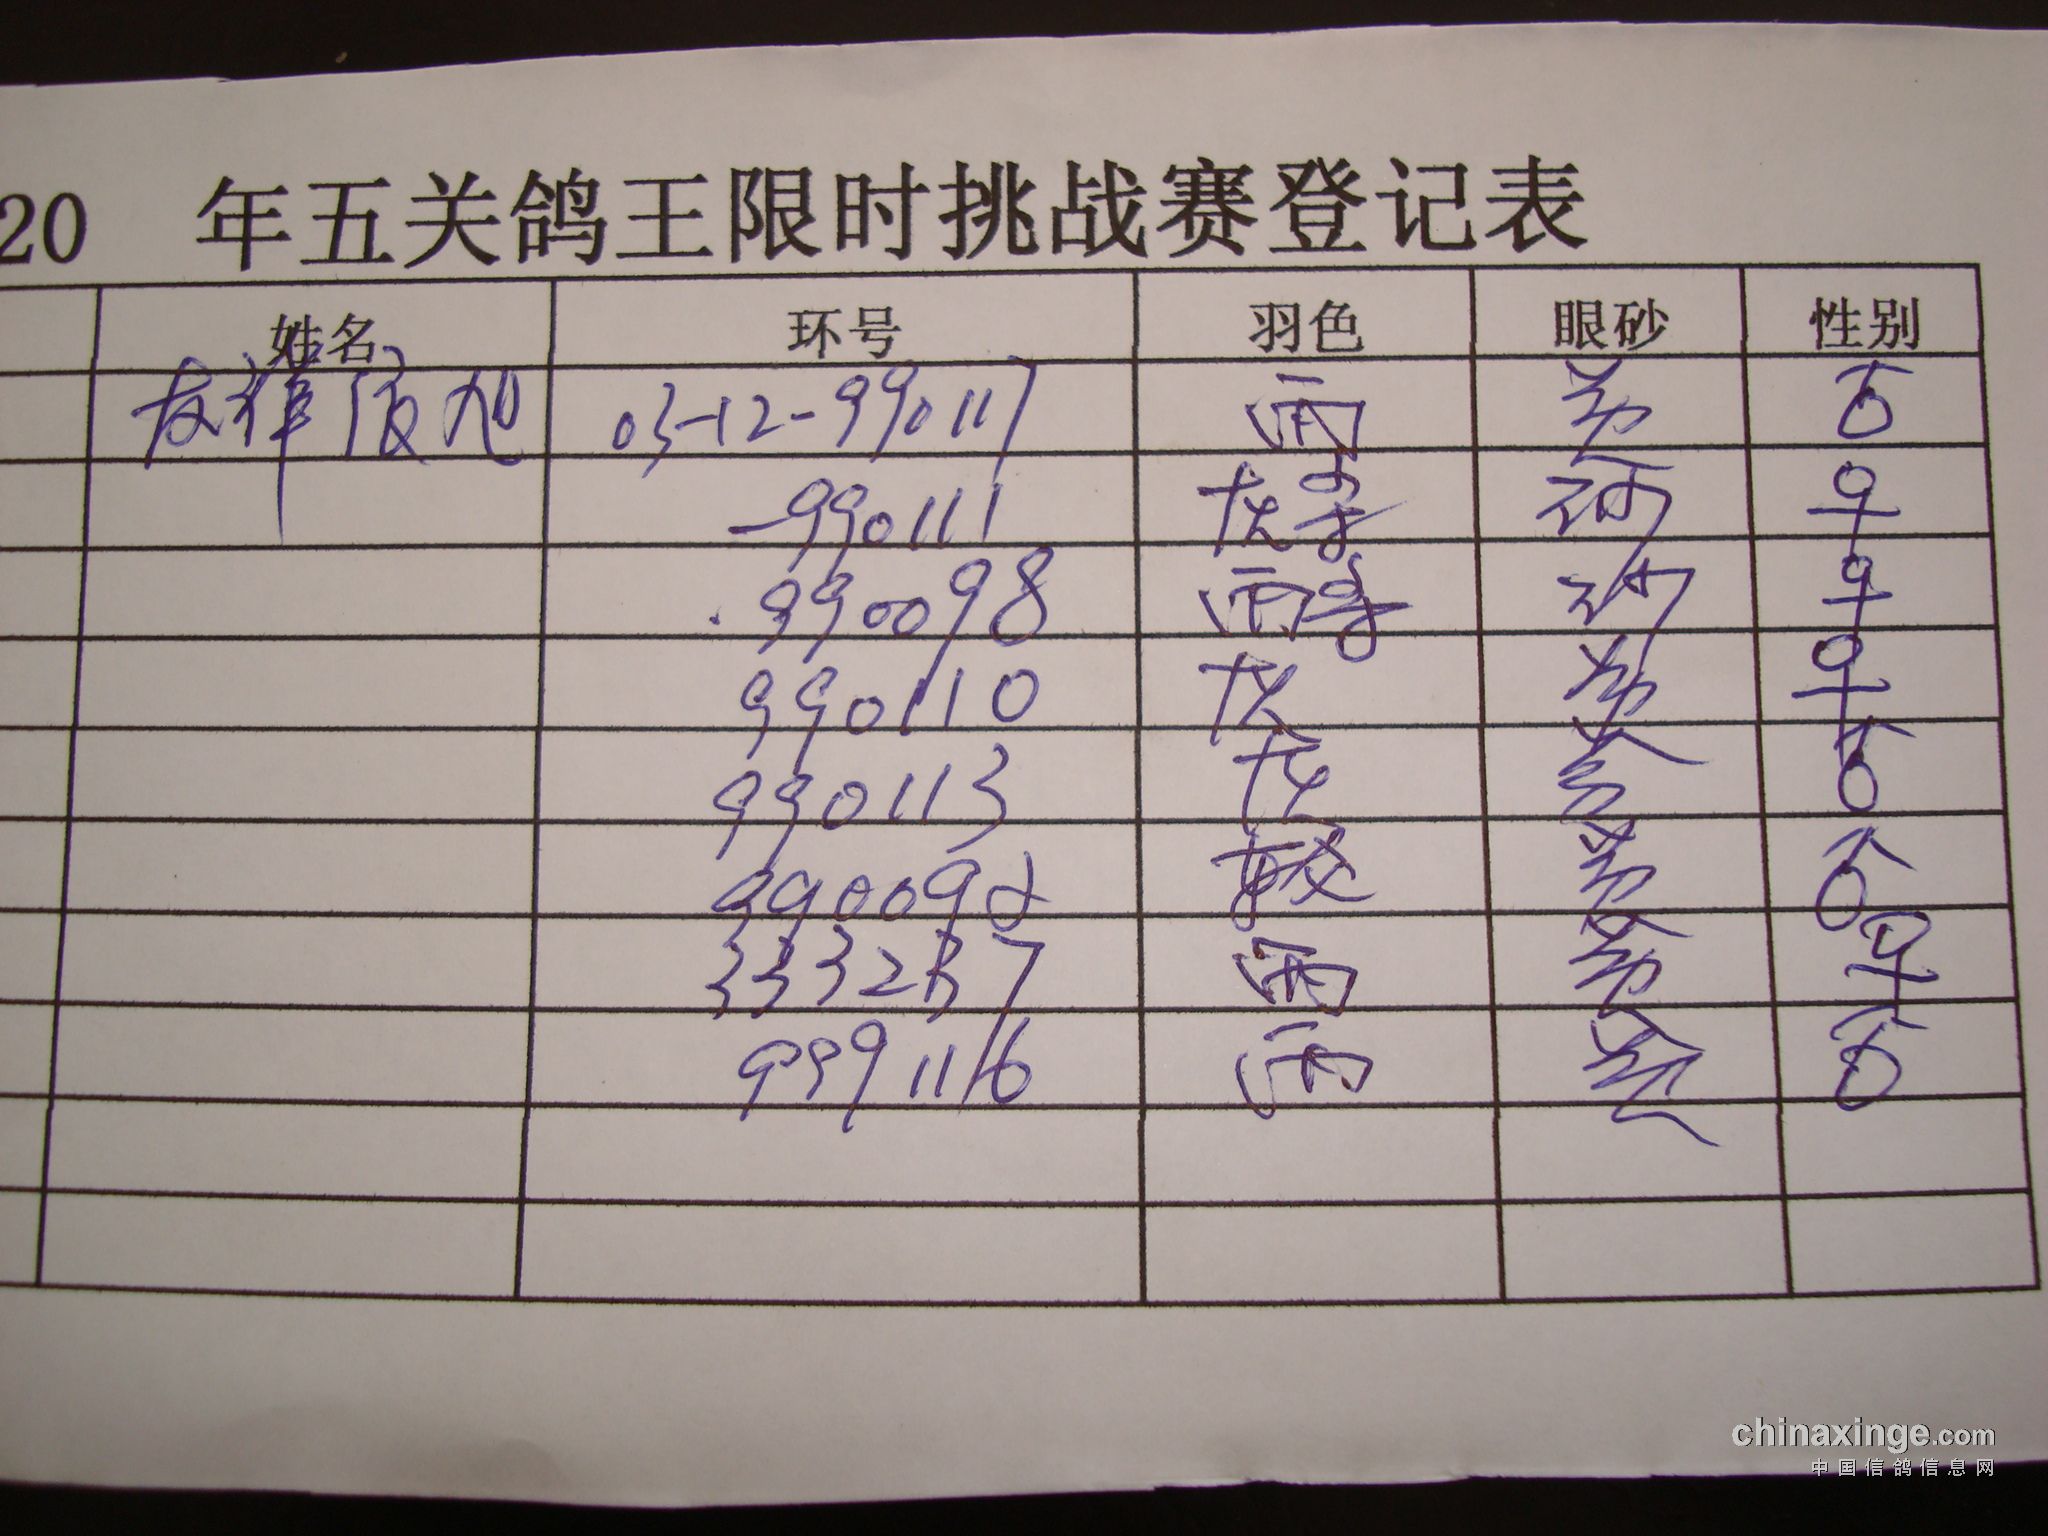 20 年五关鸽王限时挑战赛登记表
姓名 环号 羽色 眼砂 性别
03-12-990117 雨 黄 ♂
-990111 灰 砂 ♀
990098 雨 砂 ♀
990110 灰 黄 ♀
990113 灰 黄 ♂
990092 黄 ♂
3332137 雨 黄 ♀
999116 雨 黄 ♂
chinaxinge.com
中国信鸽信息网